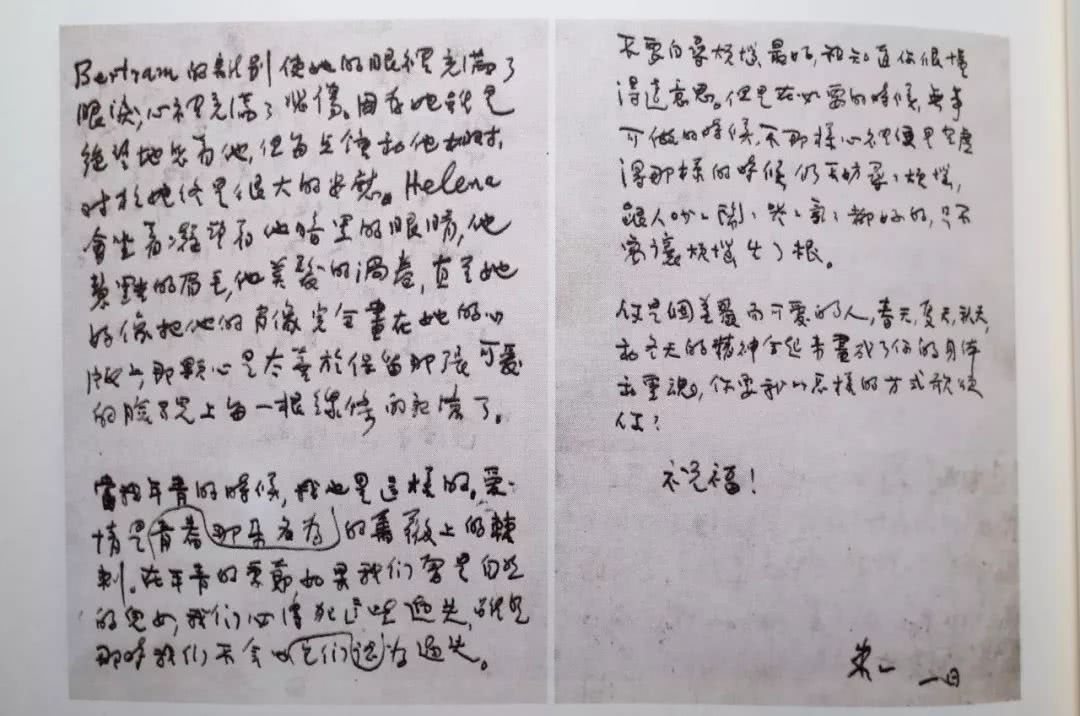 Bertram的離別使她的眼裡充滿了
眼淚,心裡充滿了悲傷。因為她雖是
絕望地愛著他,但每点鐘和他相对,
对於她終是很大的安慰。Helena
會坐着凝望着他暗黑的眼睛,他
慧黠的眉毛,他美髮的渦卷,直至她
好像把他的肖像完全畫在她的心
版上,那顆心是太善於保留那張可愛
的臉兒上每一根線條的記憶了。
當我年青的時候,我也是这樣的。爱
情是青春那朵名为的薔薇上的棘
刺。在年青的季節如果我们曾是自然
的兒女,我们必得犯这些過失,雖然
那時我们不会以它们认为過失。
不要自尋煩惱最好,我知道你很懂
得这意思。但是在必要的時候,無事
可做的時候,不那樣心裡便是空虛
得那樣的時候仍不妨尋尋煩惱,
跟人吵吵鬧鬧哭哭氣氣都好的,只不
要讓煩惱生了根。
你是個美麗而可愛的人,春天,夏天,秋天,
和冬天的精神合起来畫成了你的身体
和靈魂,你要我以怎樣的方式歌頌
你?
祝福!
朱 一日